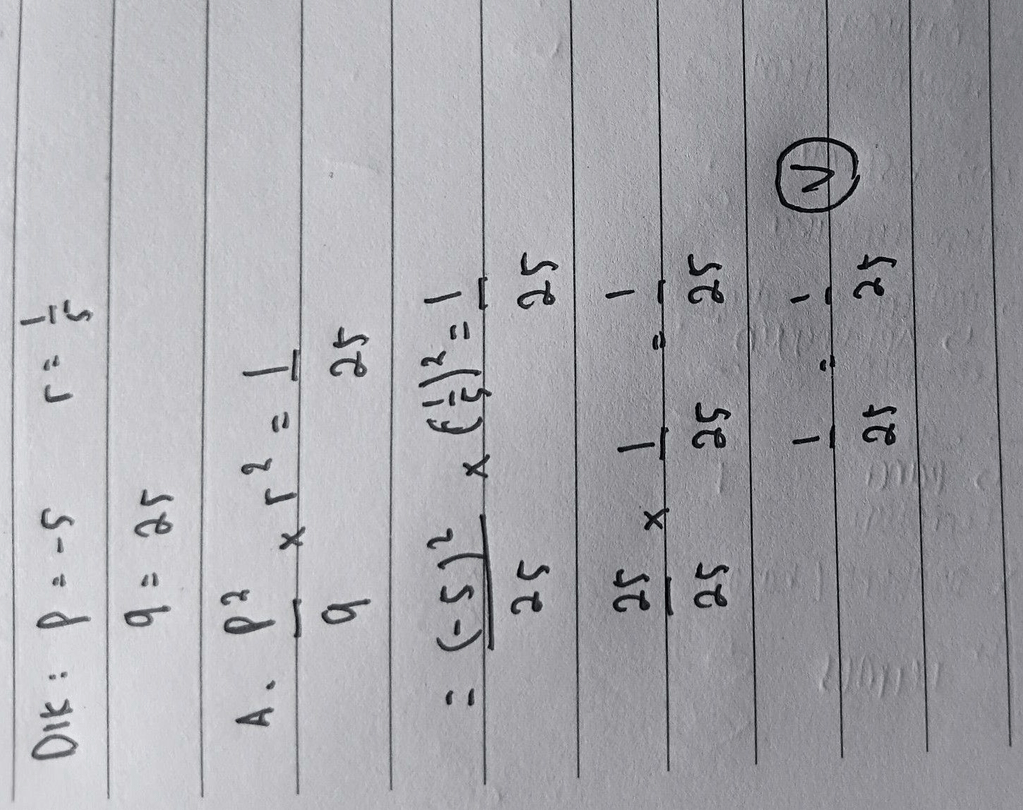 DIK : p = -5 r = 1/5
q = 25
A. p²/q x r² = 1/25
= (-5)²/25 x (1/5)² = 1/25
25/25 x 1/25 = 1/25
1/25 = 1/25 V